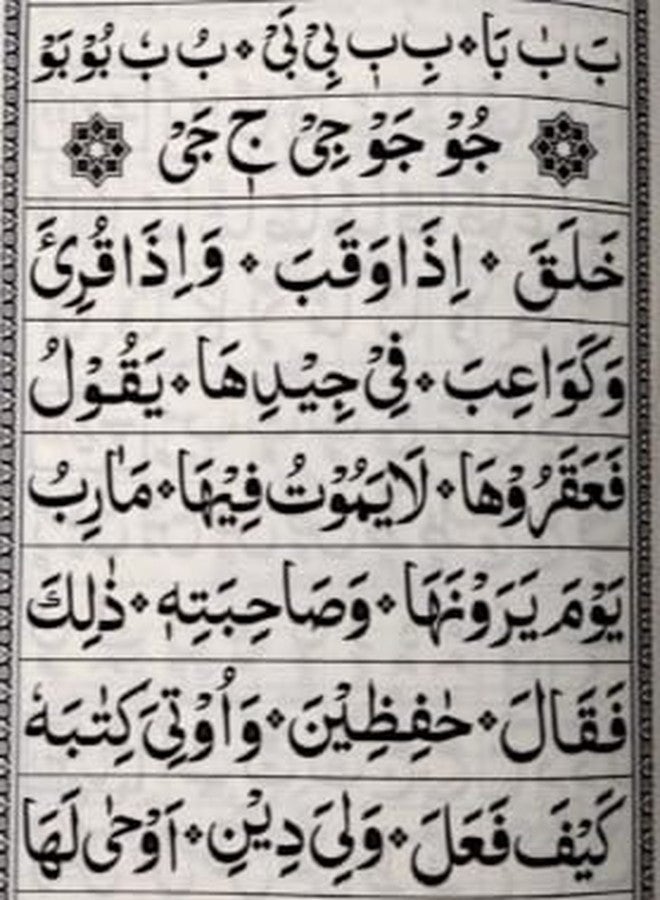 بَ بٰ بَا ٭ بِ بٖ بِیْ بَیْ ٭ بُ بٗ بُوْ بَوْ
جُوْ جَوْ جِیْ جٖ جَیْ
خَلَقَ ٭ اِذَا وَقَبَ ٭ وَاِذَا قُرِئَ
وَكَوَاعِبَ ٭ فِیْ جِیْدِهَا ٭ یَقُوْلُ
فَعَقَرُوْهَا ٭ لَا یَمُوْتُ فِیْهَا ٭ مَاٰرِبُ
یَوْمَ یَرَوْنَهَا ٭ وَصَاحِبَتِهٖ ٭ ذٰلِكَ
فَقَالَ ٭ حٰفِظِیْنَ ٭ وَاُوْتِیَ كِتٰبَهٗ
كَیْفَ فَعَلَ ٭ وَلِیَ دِیْنِ ٭ اَوْحٰی لَهَا